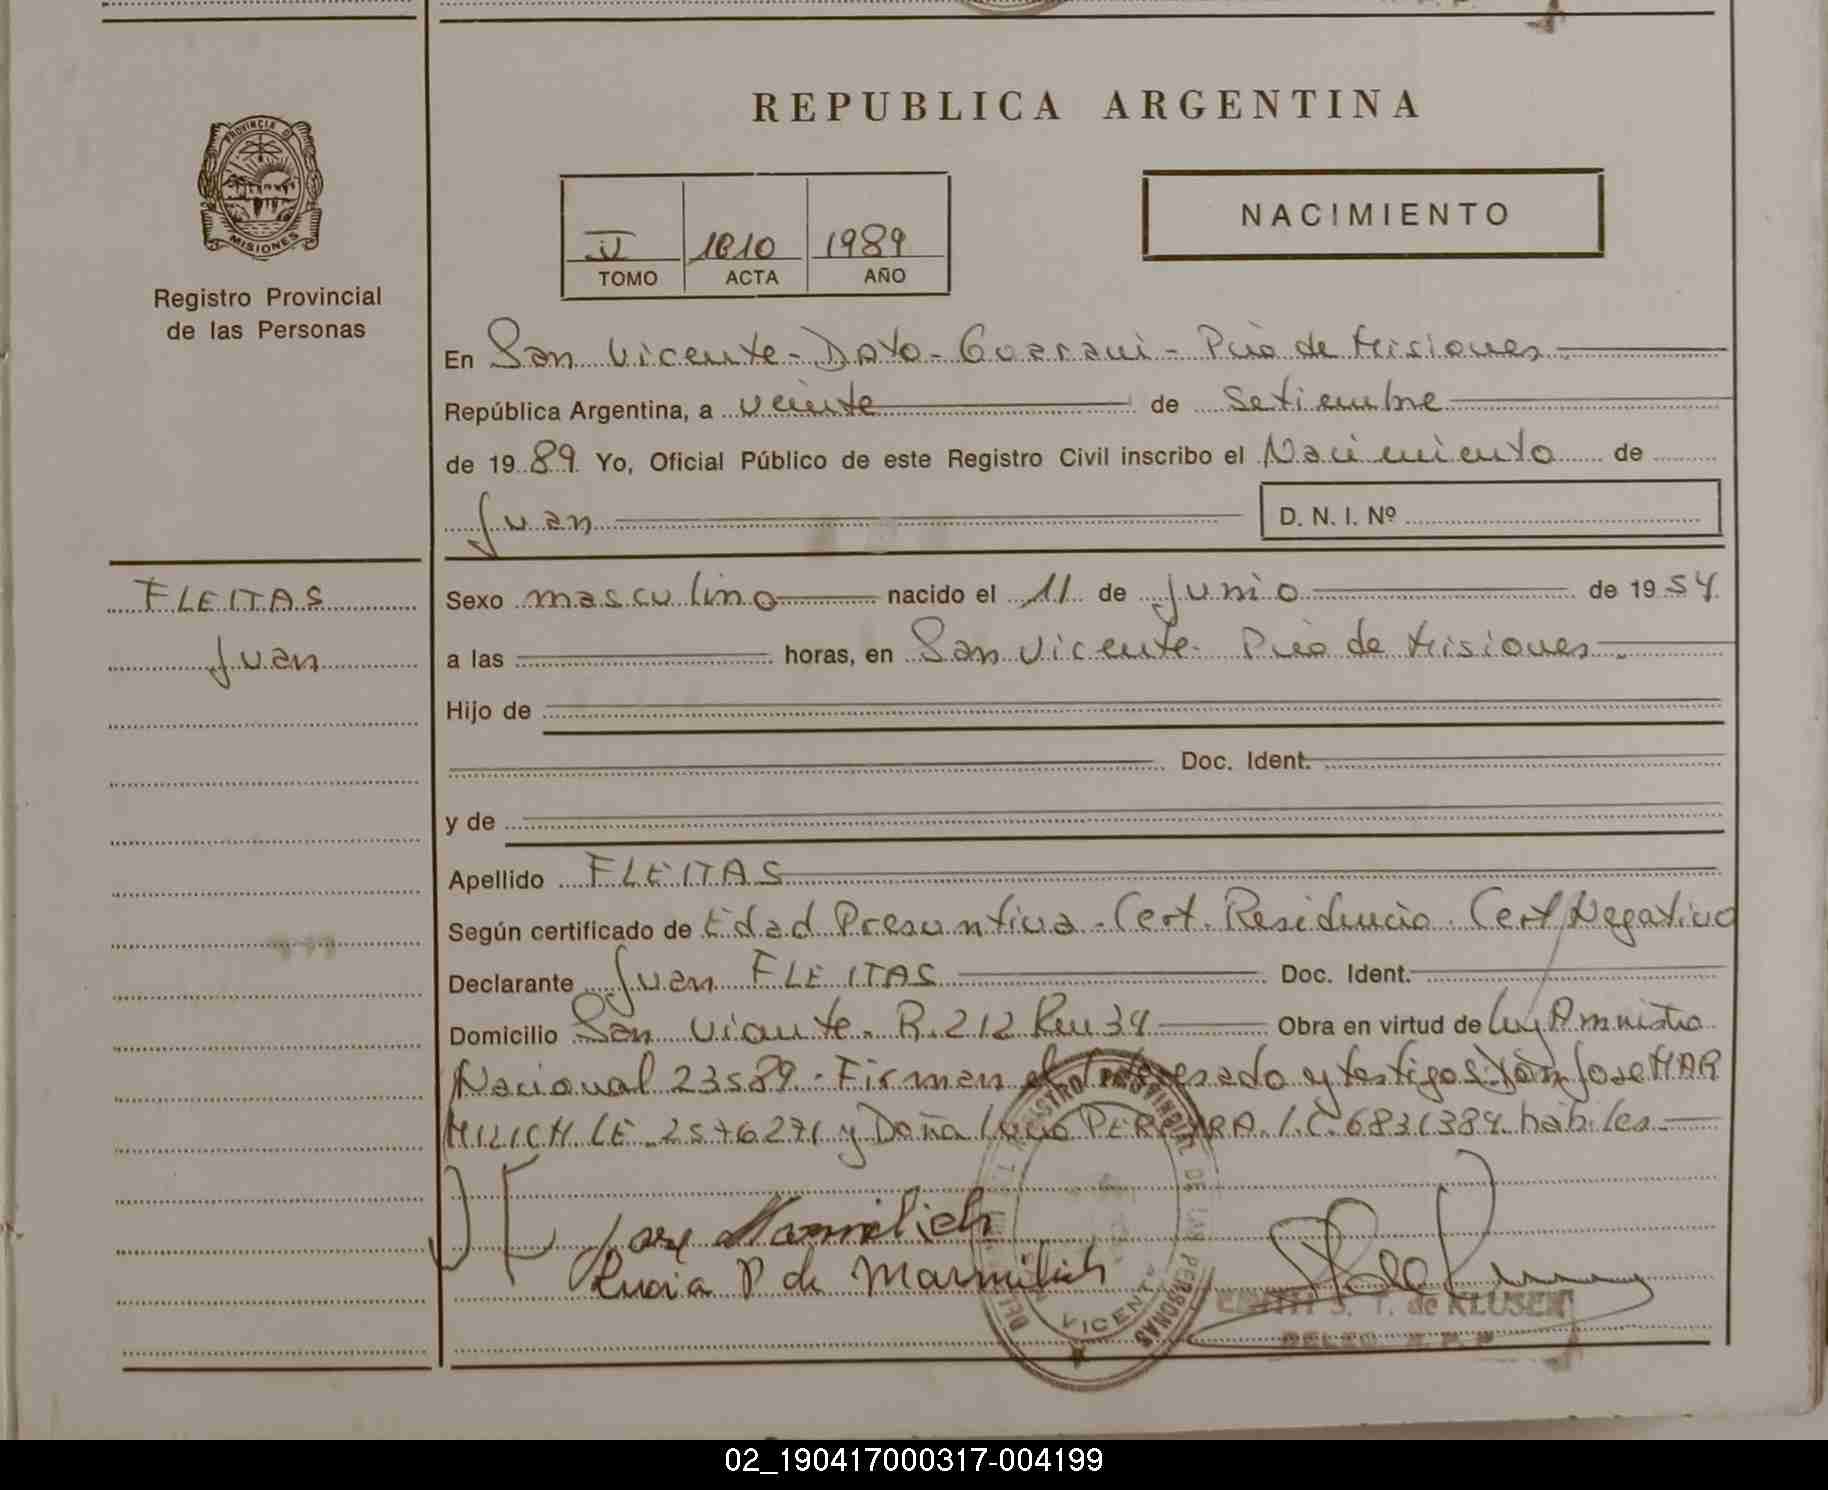 REPUBLICA ARGENTINA
PROVINCIA D
MISIONES
Registro Provincial
de las Personas
II 1010 1989
TOMO ACTA AÑO
NACIMIENTO
En San Vicente - Dpto - Guarani - Pcia de Misiones
República Argentina, a veinte de Setiembre
de 1989 Yo, Oficial Público de este Registro Civil inscribo el Nacimiento de
Juan D. N. I. Nº
FLEITAS
Juan
Sexo masculino nacido el 11 de Junio de 1954
a las horas, en San Vicente - Pcia de Misiones
Hijo de
Doc. Ident.
y de
Apellido FLEITAS
Según certificado de Edad Presuntiva - Cert. Residencia - Cert Negativo
Declarante Juan FLEITAS Doc. Ident.
Domicilio San Vicente - R. 212 Km 34 Obra en virtud de Ley Amnistia
Nacional 23589 - Firman el Interesado y testigos Don Jose MAR
MILICH LE 2576271 y Doña Lucia PEREYRA. I.C. 6831384 habiles
Jose Marmilich
Lucia P de Marmilich
REGISTRO PROVINCIAL DE LAS PERSONAS
VICENTE
EDITH S. T. de KLUSEN
DELEG. R. P. P.
02_190417000317-004199